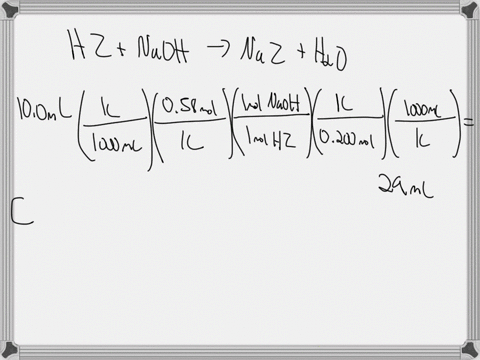 HZ + NaOH → NaZ + H₂O
10.0mL (1L/1000mL)(0.58mol/1L)(1mol NaOH/1mol HZ)(1L/0.200mol)(1000mL/1L) =
29mL
C